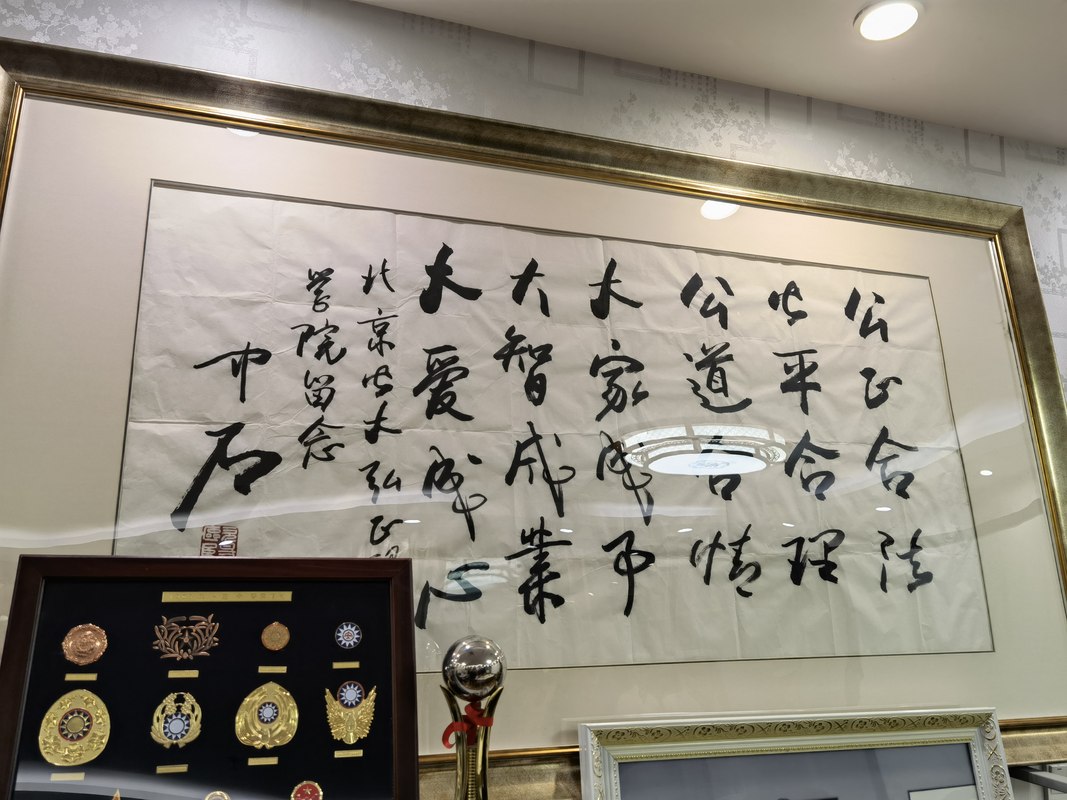 公正合法
公平合理
公道合情
大家成
大智成業
大爱成心
北京公大弘正
学院留念
中石